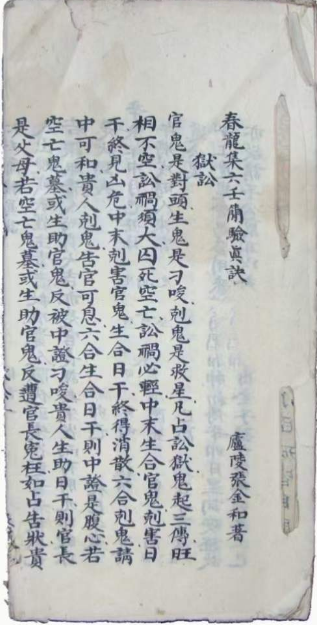 春龍集六壬簡驗真訣
廬陵張金和著
獄訟
官鬼是對頭生鬼是刁唆剋鬼是救星凡占訟獄鬼起三傳旺
相不空訟禍須大囚死空亡訟禍必輕中末生合官鬼剋害日
干終見凶危中末剋害官鬼生合日干終得消散六合剋鬼請
中可和貴人剋鬼告官可息六合生合日干則中證是腹心若
空亡鬼墓或生助官鬼反被中證刁唆貴人生助日干則官長
是父母若空亡鬼墓或生助官鬼反遭官長寃枉如占告狀貴